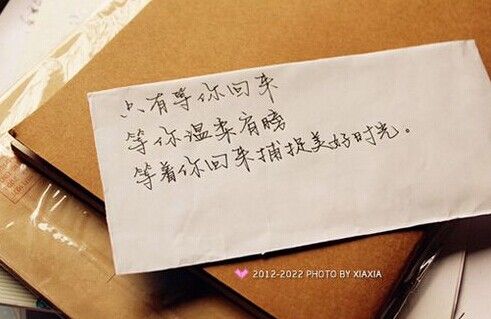 只有等你回来
等你温柔有时
等着你回来捕捉美好时光。
2012-2022 PHOTO BY XIAXIA